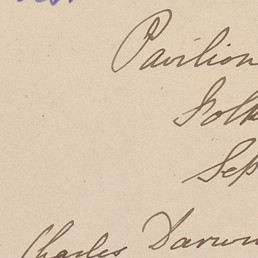 Pavilion
Folk
Sep
Charles Darwin